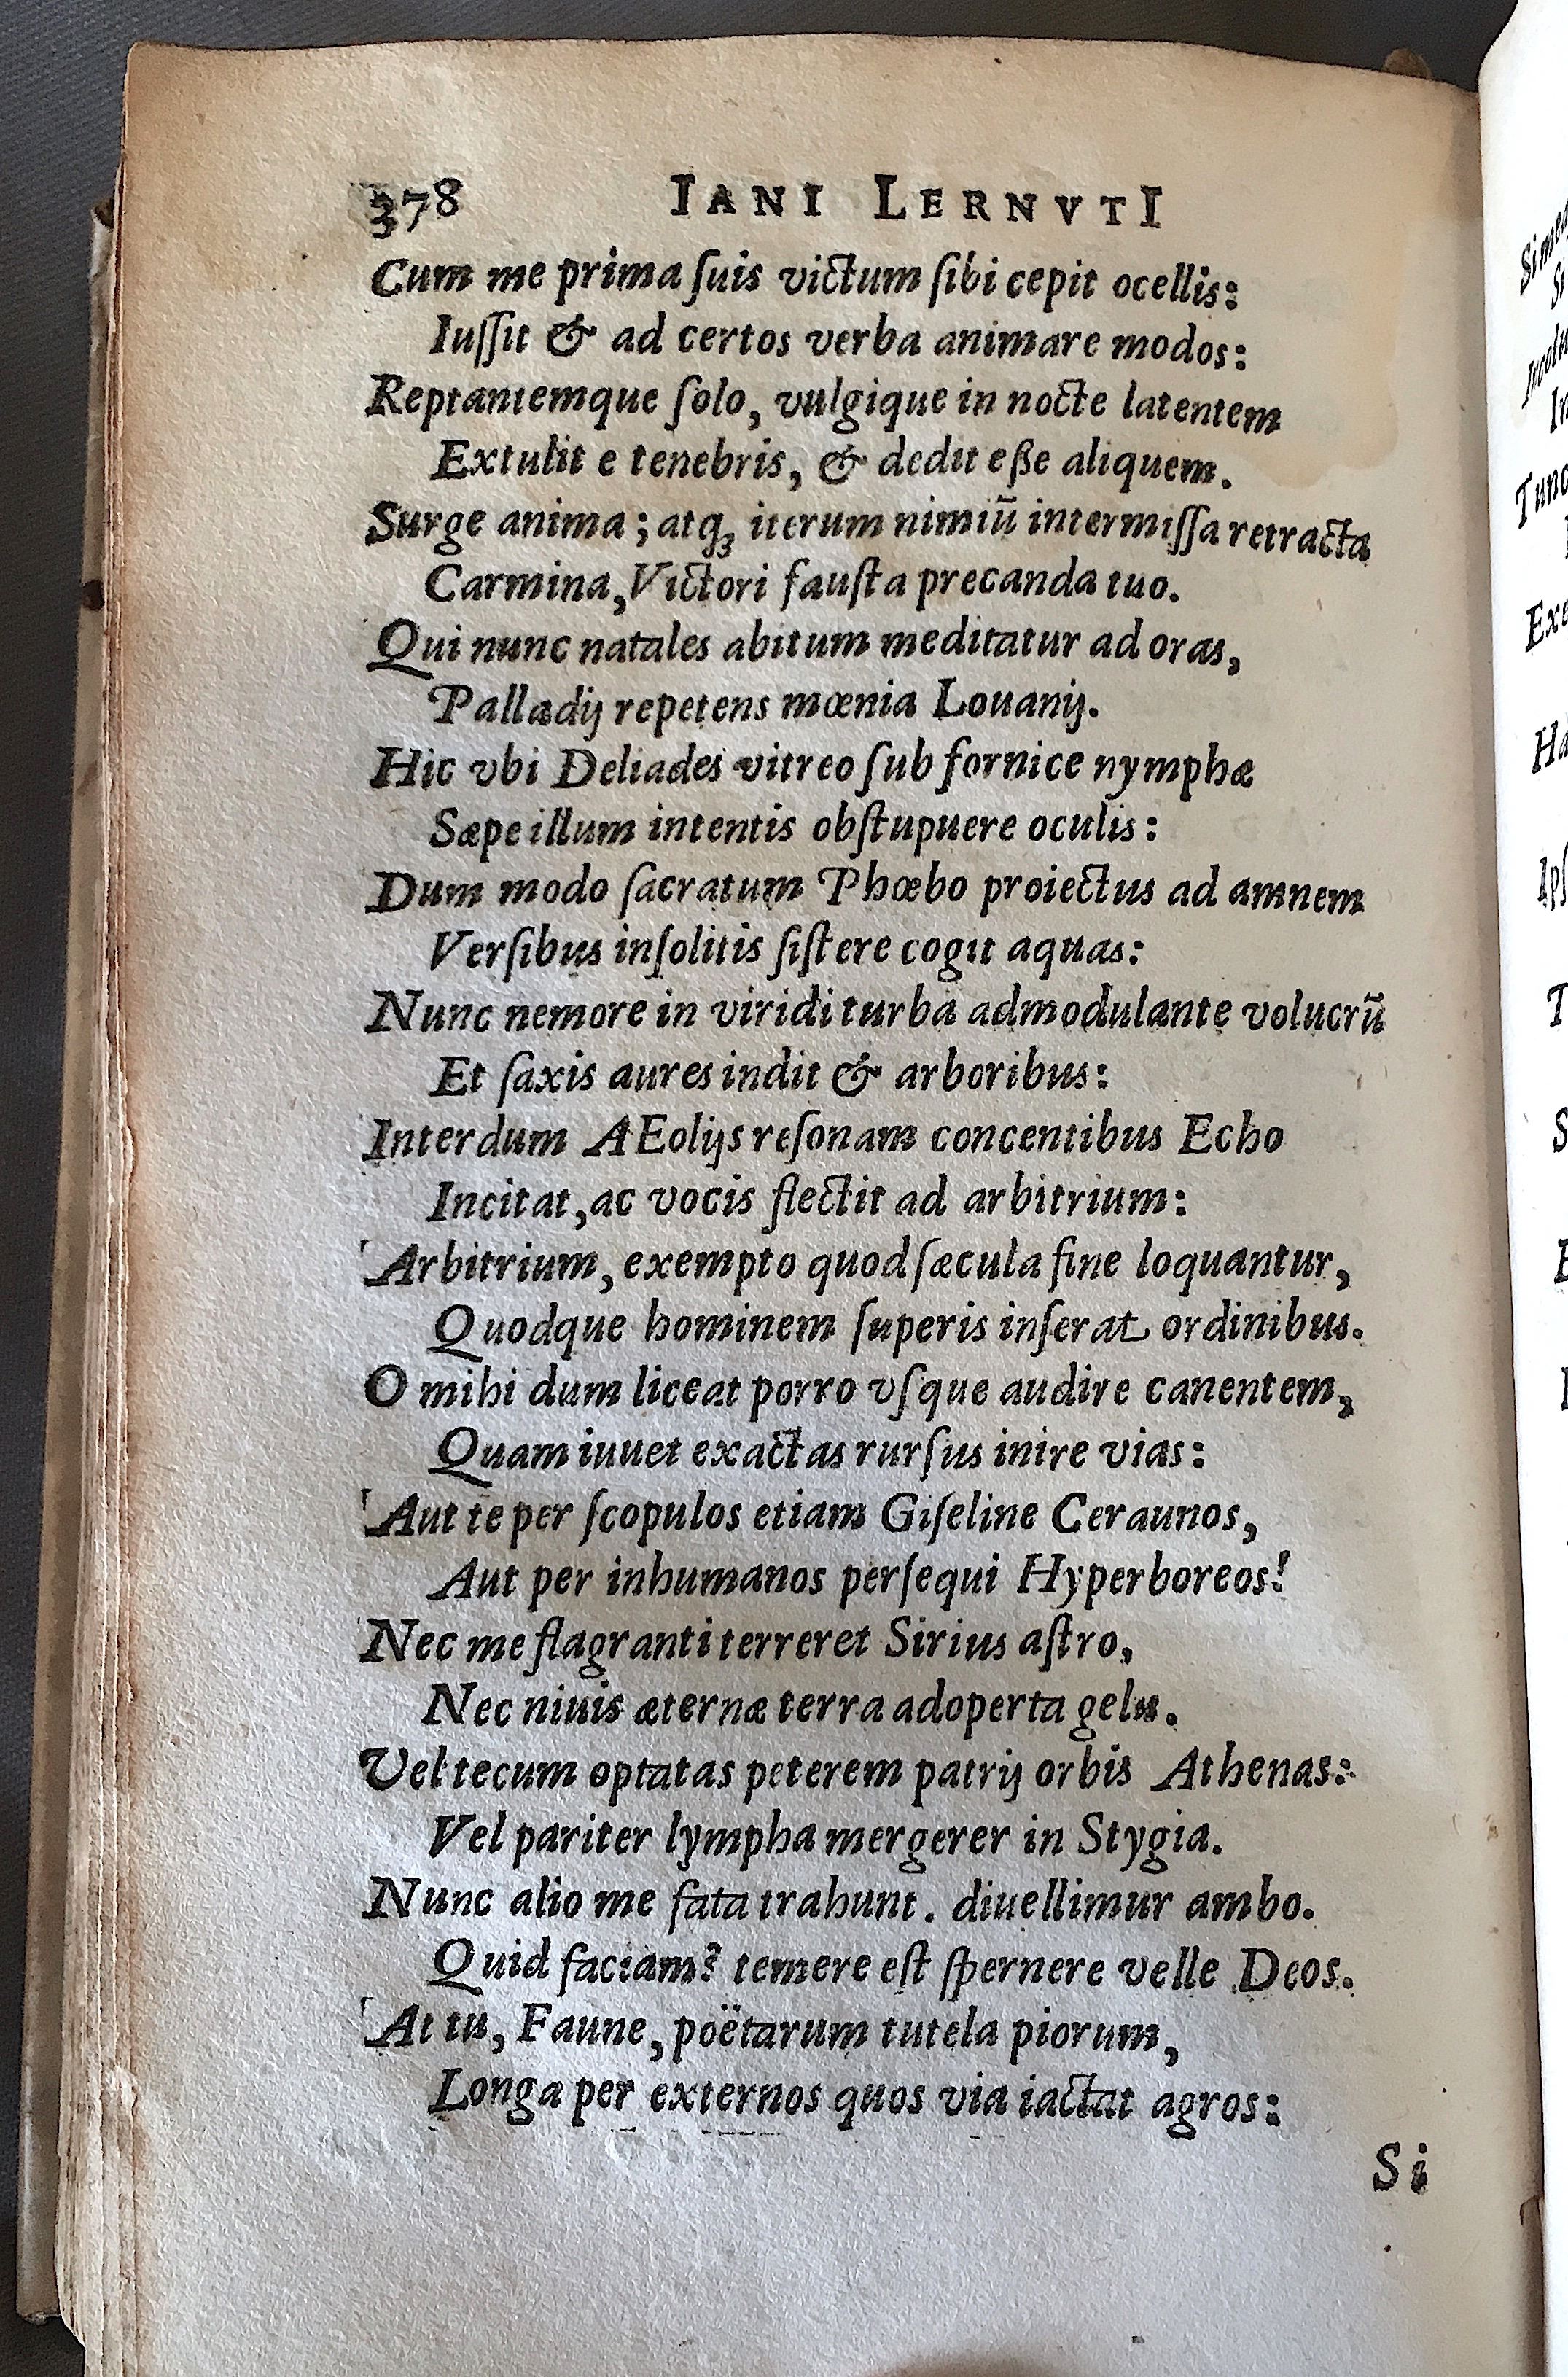 378 IANI LERNVTI
Cum me prima ſuis victum ſibi cepit ocellis:
Iuſſit & ad certos verba animare modos:
Reptantemque ſolo, vulgique in nocte latentem
Extulit e tenebris, & dedit eße aliquem.
Surge anima; atqꝫ iterum nimiū intermiſſa retracta
Carmina, Victori fauſta precanda tuo.
Qui nunc natales abitum meditatur ad oras,
Palladij repetens mœnia Louanij.
Hic vbi Deliades vitreo ſub fornice nymphæ
Sæpe illum intentis obſtupuere oculis:
Dum modo ſacratum Phœbo proiectus ad amnem
Verſibus inſolitis ſiſtere cogit aquas:
Nunc nemore in viridi turba admodulante volucrū
Et ſaxis aures indit & arboribus:
Interdum AEolijs reſonam concentibus Echo
Incitat, ac vocis flectit ad arbitrium:
Arbitrium, exempto quod ſæcula fine loquantur,
Quodque hominem ſuperis inſerat ordinibus.
O mihi dum liceat porro vſque audire canentem,
Quam iuuet exactas rurſus inire vias:
Aut te per ſcopulos etiam Giſeline Ceraunos,
Aut per inhumanos perſequi Hyperboreos!
Nec me flagranti terreret Sirius aſtro,
Nec niuis æternæ terra adoperta gelu.
Vel tecum optatas peterem patrij orbis Athenas:
Vel pariter lympha mergerer in Stygia.
Nunc alio me fata trahunt. diuellimur ambo.
Quid faciam? temere eſt ſpernere velle Deos.
At tu, Faune, poëtarum tutela piorum,
Longa per externos quos via iactat agros:
Si